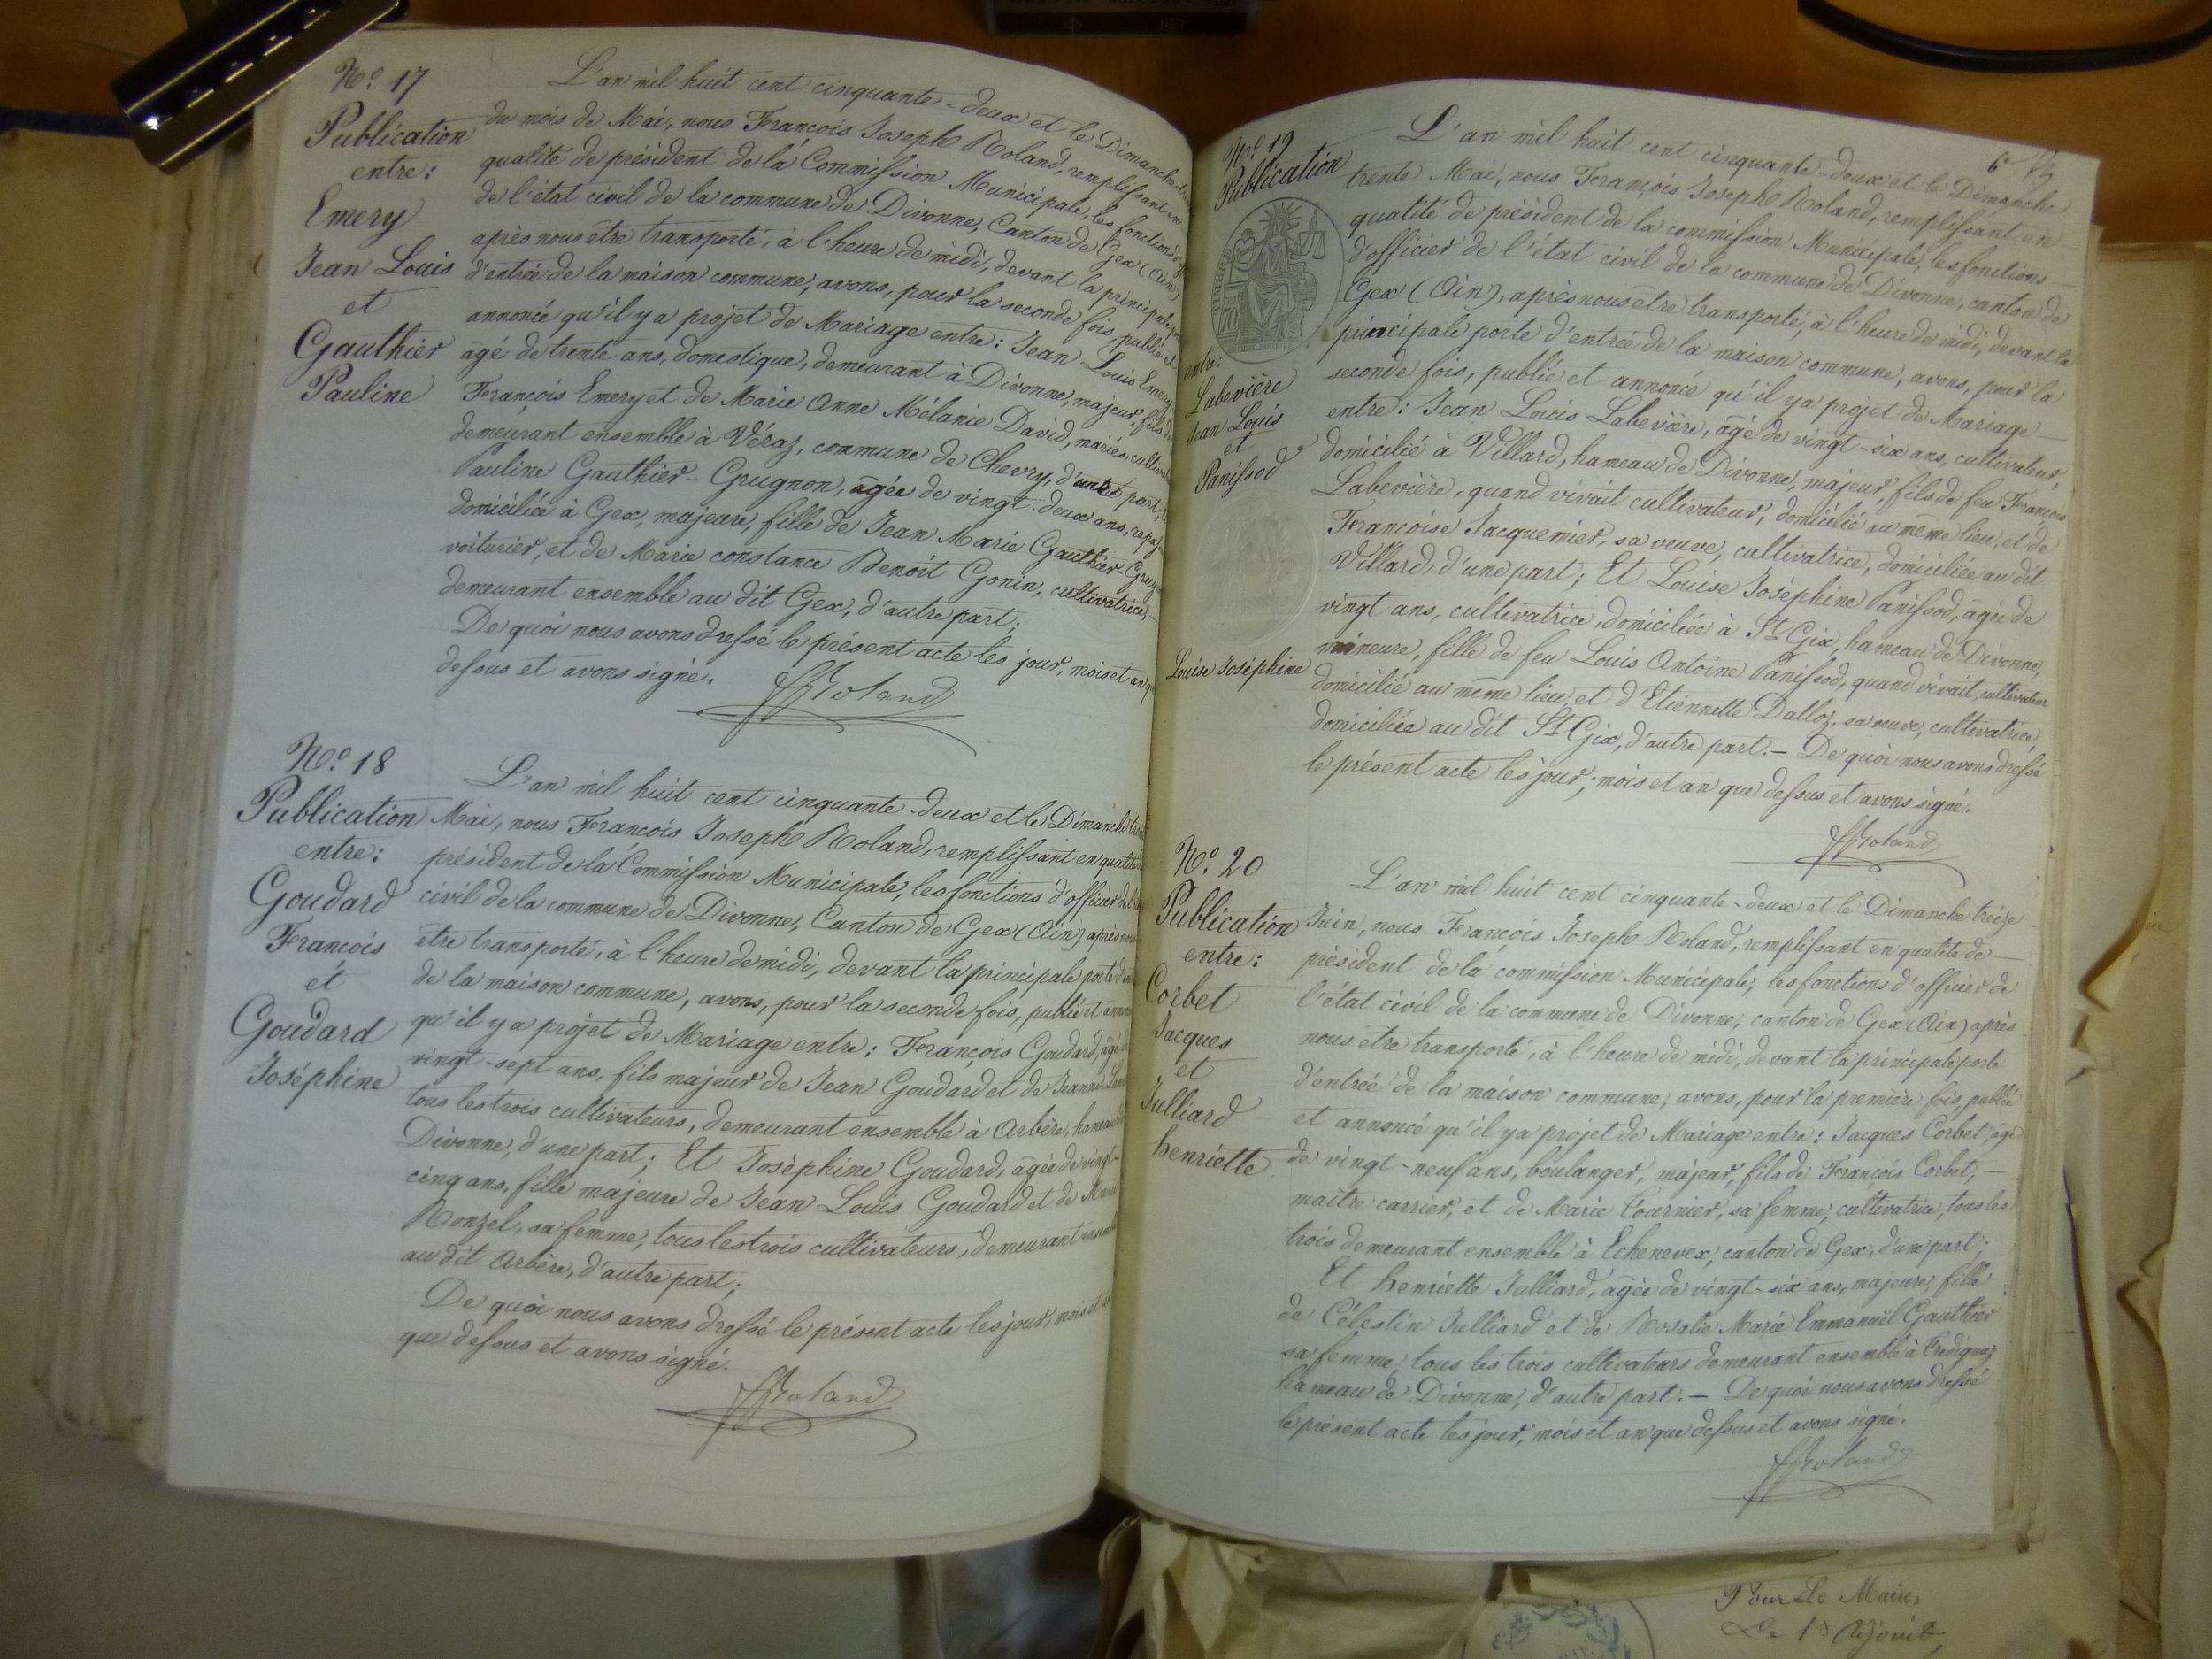 N.º 17
Publication
entre:
Emery
Jean Louis
et
Gauthier
Pauline
L'an mil huit cent cinquante-deux et le Dimanche
du mois de Mai, nous François Joseph Roland, remplissant en
qualité de président de la Commission Municipale, les fonctions
de l'état civil de la commune de Divonne, Canton de Gex (Ain)
après nous être transporté, à l'heure de midi, devant la principale
d'entrée de la maison commune, avons, pour la seconde fois, publié et
annoncé qu'il y a projet de Mariage entre: Jean Louis Emery
agé de trente ans, domestique, demeurant à Divonne, majeur, fils de
François Emery et de Marie Anne Mélanie David, mariés,
demeurant ensemble à Véraz, commune de Chevry, d'une part,
Pauline Gauthier-Grugnon, agée de vingt-deux ans,
domiciliée à Gex, majeure, fille de Jean Marie Gauthier-
voiturier, et de Marie constance Benoit Gonin, cultivatrice,
demeurant ensemble au dit Gex, d'autre part;
De quoi nous avons dressé le présent acte les jour, mois et an
dessus et avons signé.
FJRoland
N.º 18
Publication
entre:
Goudard
François
et
Goudard
Joséphine
L'an mil huit cent cinquante-deux et le Dimanche
Mai, nous François Joseph Roland, remplissant en qualité
président de la Commission Municipale, les fonctions d'officier
civil de la commune de Divonne, Canton de Gex (Ain) après
être transporté, à l'heure de midi, devant la principale porte
de la maison commune, avons, pour la seconde fois, publié et
qu'il y a projet de Mariage entre: François Goudard, âgé
vingt-sept ans, fils majeur de Jean Goudard et de Jeanne
tous les trois cultivateurs, demeurant ensemble à Arbère,
Divonne, d'une part; Et Joséphine Goudard, âgée de vingt-
cinq ans, fille majeure de Jean Louis Goudard et de Marie
Ronzel, sa femme, tous les trois cultivateurs, demeurant
au dit Arbère, d'autre part;
De quoi nous avons dressé le présent acte les jour, mois et
que dessus et avons signé.
FJRoland
6e
N.º 19
Publication
entre:
Labevière
Jean Louis
et
Panissod
Louise Joséphine
L'an mil huit cent cinquante-deux et le Dimanche
trente Mai, nous François Joseph Roland, remplissant en
qualité de président de la commission Municipale, les fonctions
d'officier de l'état civil de la commune de Divonne, canton de
Gex (Ain), après nous être transporté, à l'heure de midi, devant la
principale porte d'entrée de la maison commune, avons, pour la
seconde fois, publié et annoncé qu'il y a projet de Mariage
entre: Jean Louis Labevière, âgé de vingt-six ans, cultivateur,
domicilié à Villard, hameau de Divonne, majeur, fils de feu François
Labevière, quand vivait cultivateur, domicilié au même lieu, et de
Françoise Jacquemier, sa veuve, cultivatrice, domiciliée au dit
Villard, d'une part; Et Louise Joséphine Panissod, âgée de
vingt ans, cultivatrice, domiciliée à St Gix, hameau de Divonne,
mineure, fille de feu Louis Antoine Panissod, quand vivait, cultivateur
domicilié au même lieu, et d'Etiennette Dalloz, sa veuve, cultivatrice,
domiciliée au dit St Gix, d'autre part.— De quoi nous avons dressé
le présent acte les jour, mois et an que dessus et avons signé.
FJRoland
N.º 20
Publication
entre:
Corbet
Jacques
et
Julliard
henriette
L'an mil huit cent cinquante-deux et le Dimanche treize
Juin, nous François Joseph Roland, remplissant en qualité de
président de la commission Municipale, les fonctions d'officier de
l'état civil de la commune de Divonne, canton de Gex (Ain) après
nous être transporté, à l'heure de midi, devant la principale porte
d'entrée de la maison commune, avons, pour la première fois, publié
et annoncé qu'il y a projet de Mariage entre: Jacques Corbet, âgé
de vingt-neuf ans, boulanger, majeur, fils de François Corbet,
maître carrier, et de Marie Tournier, sa femme, cultivatrice, tous les
trois demeurant ensemble à Echenevex, canton de Gex, d'une part;
Et henriette Julliard, agée de vingt-six ans, majeure, fille
de Célestin Julliard et de Rosalie Marie Emmanuël Gauthier
sa femme, tous les trois cultivateurs demeurant ensemble à
hameau de Divonne, d'autre part.— De quoi nous avons dressé
le présent acte les jour, mois et an que dessus et avons signé.
FJRoland
Pour Le Maire,
Le 1er Adjoint,